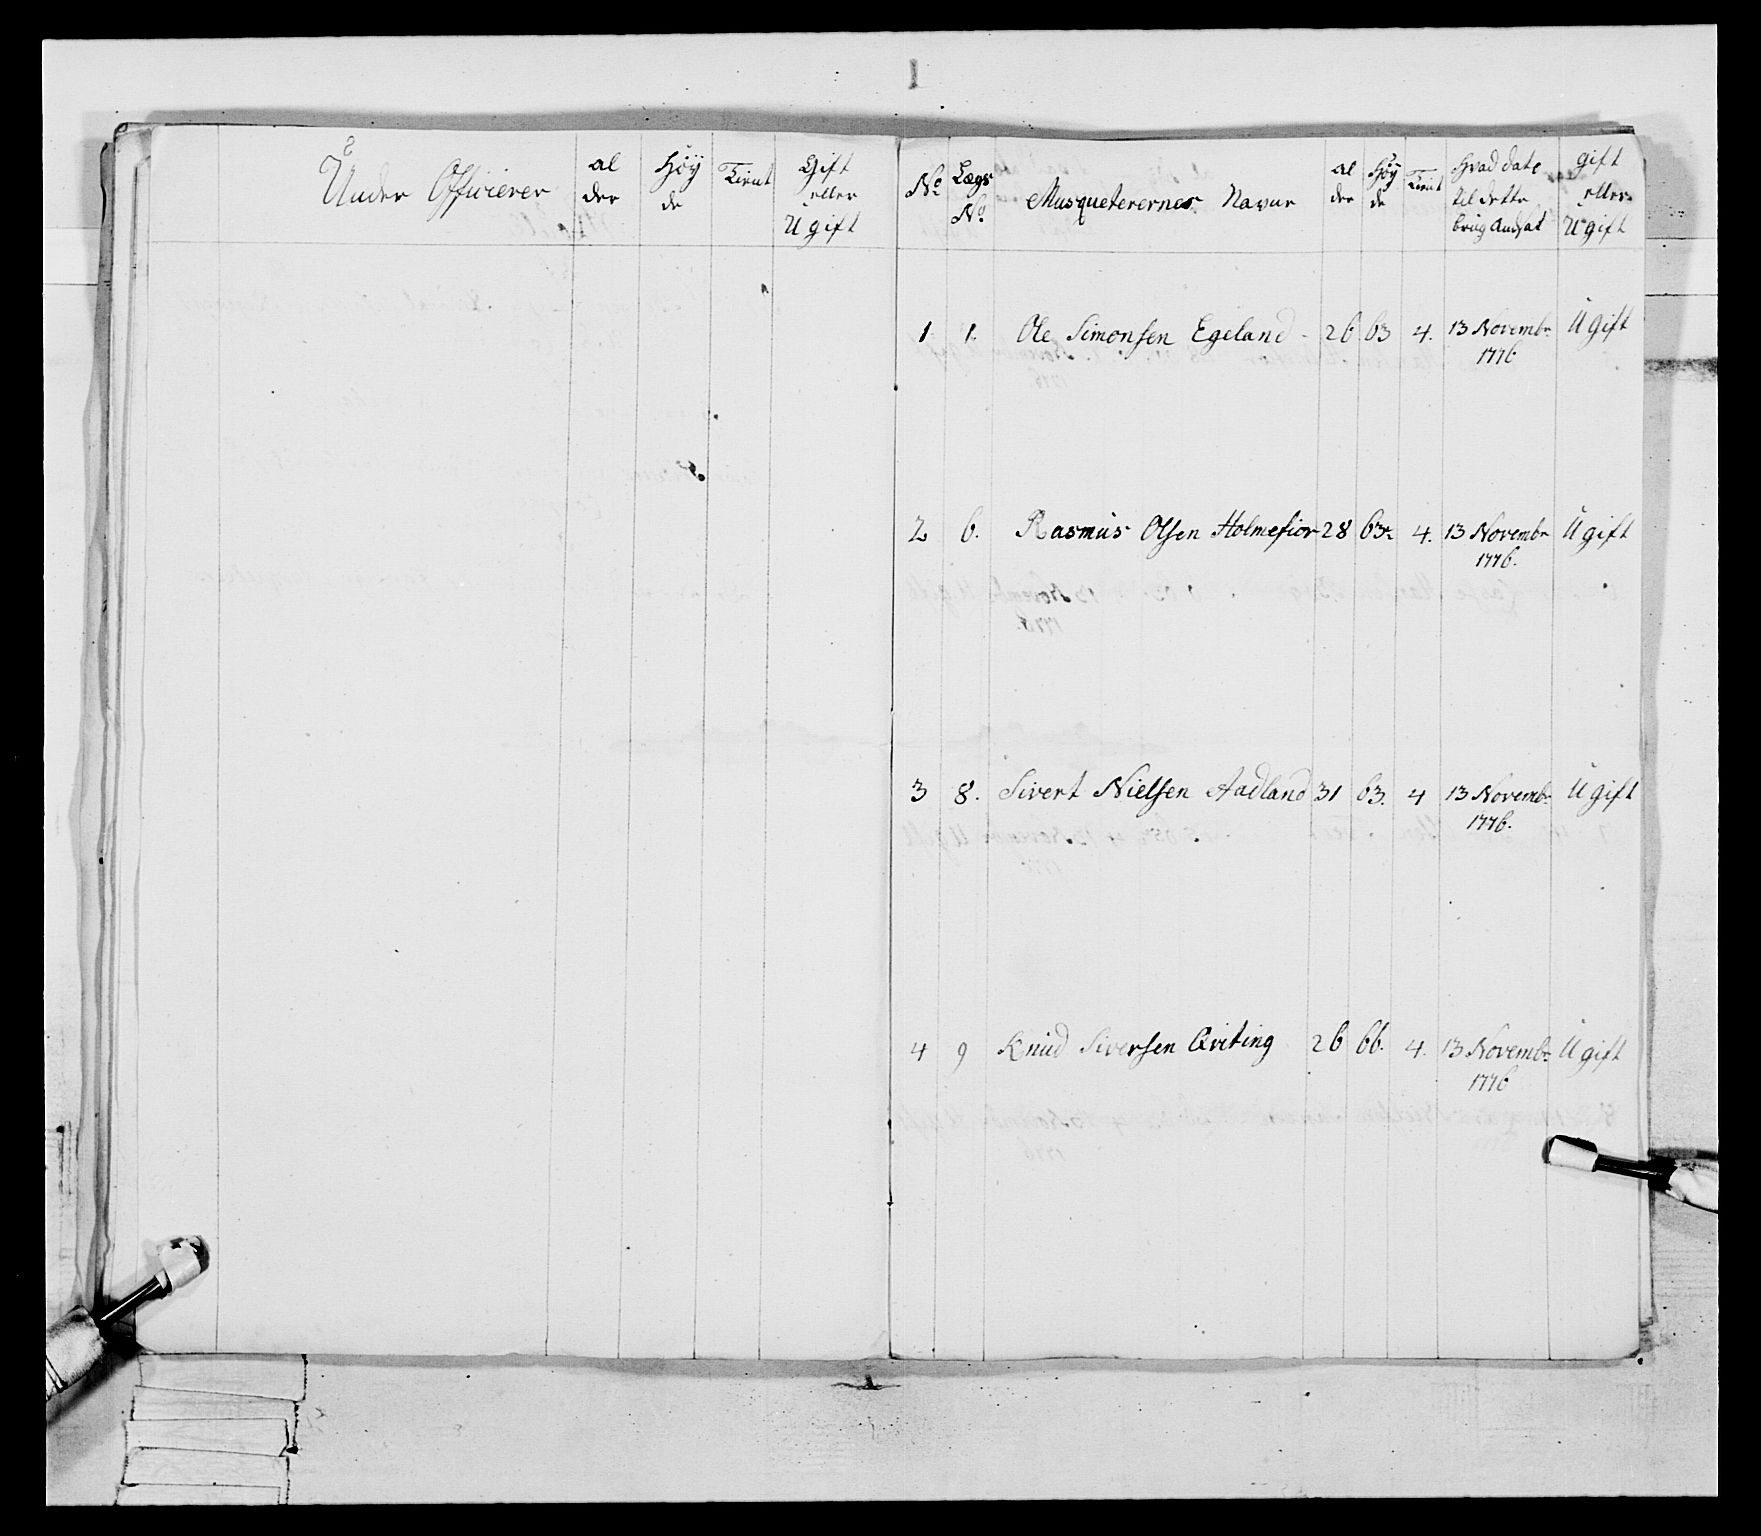 Under Officierer
Al
der
Høy
de
Tient
Gift
eller
Ugift
No
Lægs
No
Musqueterernes Navne
Al
der
Høy
de
Tient
Hvad date
til dette
brug Andsat
gift
eller
Ugift
1 1. Ole Simonsen Egeland 26 63 4. 13 Novembr Ugift
1776
2 6. Rasmus Olsen Holmefior 28 63½ 4. 13 Novembr Ugift
1776.
3 8. Sivert Nielsen Aadland 31 63. 4 13 Novembr Ugift
1776.
4 9 Knud Siversen Qviting 26 66. 4. 13 Novembr Ugift
1776